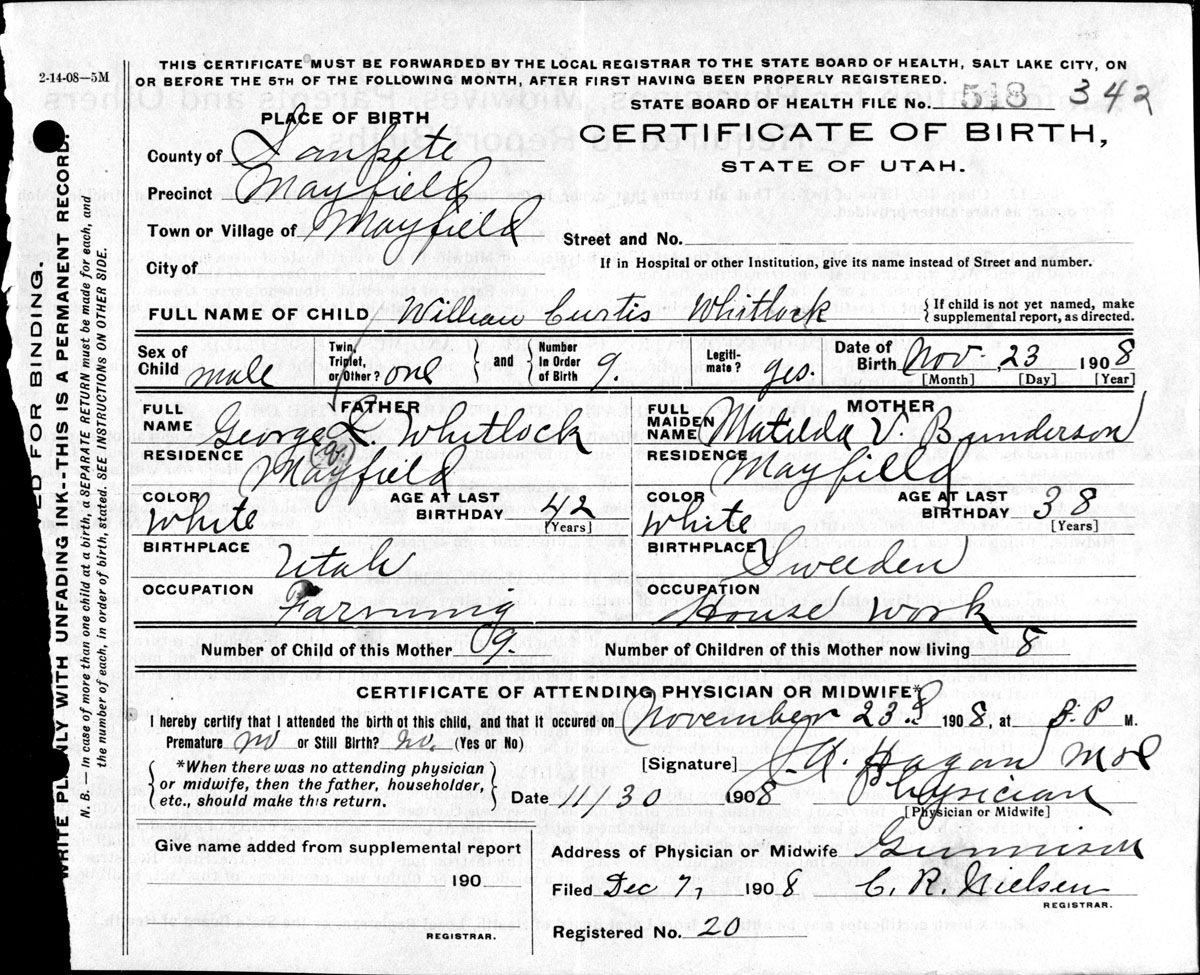 2-14-08—5M
THIS CERTIFICATE MUST BE FORWARDED BY THE LOCAL REGISTRAR TO THE STATE BOARD OF HEALTH, SALT LAKE CITY, ON
OR BEFORE THE 5TH OF THE FOLLOWING MONTH, AFTER FIRST HAVING BEEN PROPERLY REGISTERED.
STATE BOARD OF HEALTH FILE No. 518 342
PLACE OF BIRTH
CERTIFICATE OF BIRTH,
STATE OF UTAH.
County of Sanpete
Precinct Mayfield
Town or Village of Mayfield
Street and No.
City of
If in Hospital or other Institution, give its name instead of Street and number.
FULL NAME OF CHILD William Curtis Whitlock
{If child is not yet named, make
supplemental report, as directed.
Sex of Child male
Twin, Triplet, or Other? one } and { Number in Order of Birth 9.
Legiti-mate? yes.
Date of Birth Nov. 23 1908
[Month] [Day] [Year]
FATHER
FULL NAME George L. Whitlock
RESIDENCE Mayfield
COLOR White AGE AT LAST BIRTHDAY 42
[Years]
BIRTHPLACE Utah
OCCUPATION Farming
MOTHER
FULL MAIDEN NAME Matilda V. Bunderson
RESIDENCE Mayfield
COLOR White AGE AT LAST BIRTHDAY 38
[Years]
BIRTHPLACE Sweeden
OCCUPATION House work
Number of Child of this Mother 9. Number of Children of this Mother now living 8
CERTIFICATE OF ATTENDING PHYSICIAN OR MIDWIFE*
I hereby certify that I attended the birth of this child, and that it occured on November 23 1908, at P M.
Premature no or Still Birth? no. (Yes or No)
[Signature] Hagan
{*When there was no attending physician
or midwife, then the father, householder,
etc., should make this return.}
Date 11/30 1908 Physician
[Physician or Midwife]
Give name added from supplemental report
190
REGISTRAR.
Address of Physician or Midwife Gunnison
Filed Dec 7, 1908 C. R. Nielsen
REGISTRAR.
Registered No. 20
FOR BINDING.
WRITE PLAINLY WITH UNFADING INK--THIS IS A PERMANENT RECORD.
N. B.—In case of more than one child at a birth, a SEPARATE RETURN must be made for each, and
the number of each, in order of birth, stated. SEE INSTRUCTIONS ON OTHER SIDE.